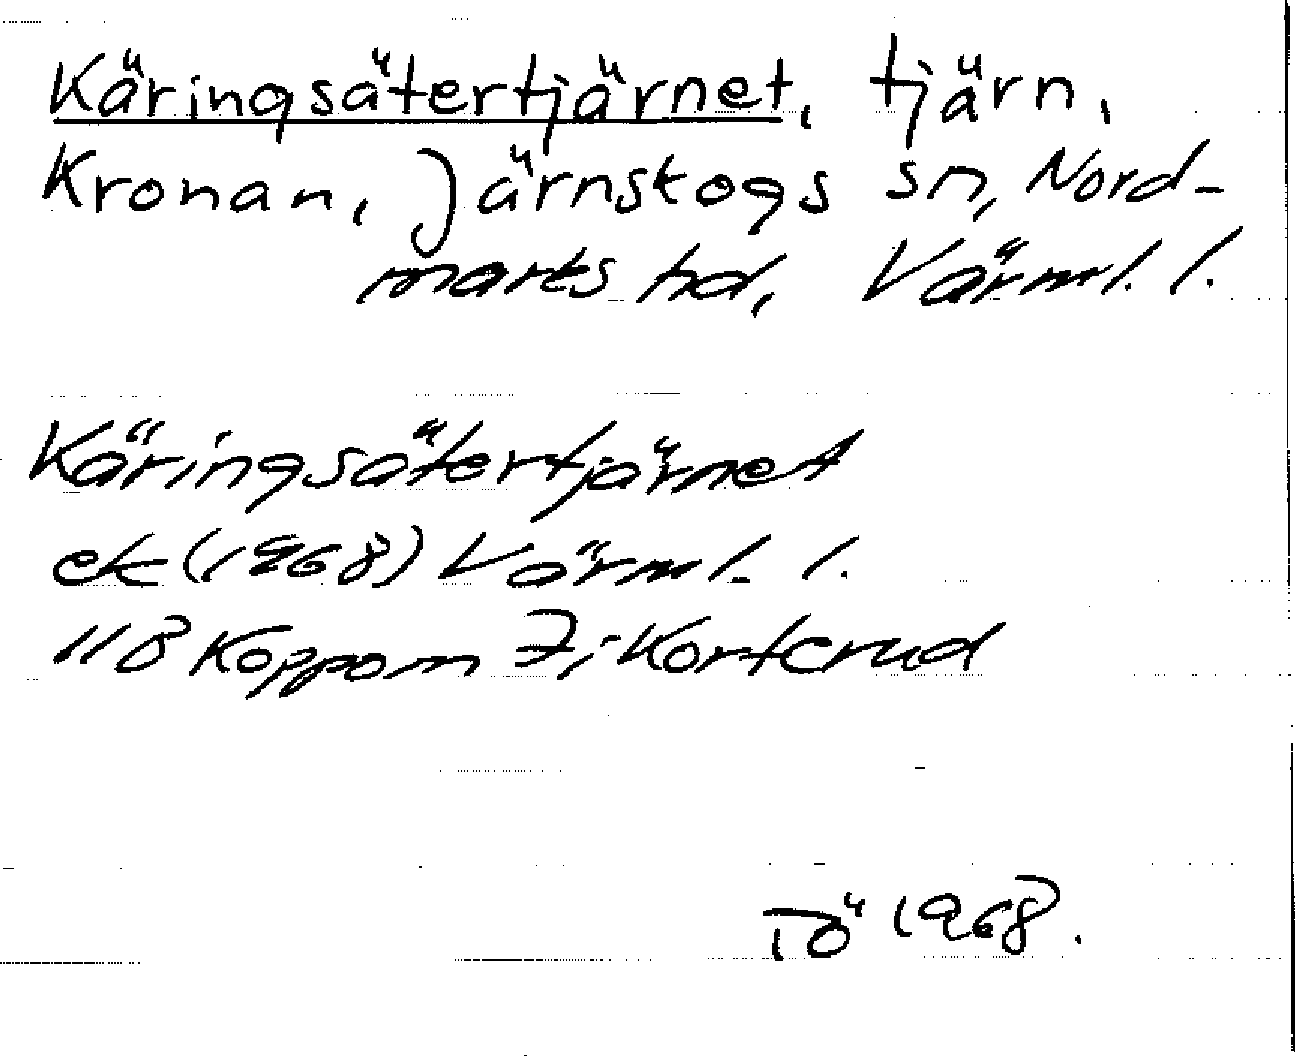 Käringsätertjärnet, tjärn,
Kronan, Järnskogs sn, Nord-
marks hd, Värml. l.
Käringsätertjärnet
ek (1968) Värml. l.
11B Koppom 7i Korterud
Tö 1968.